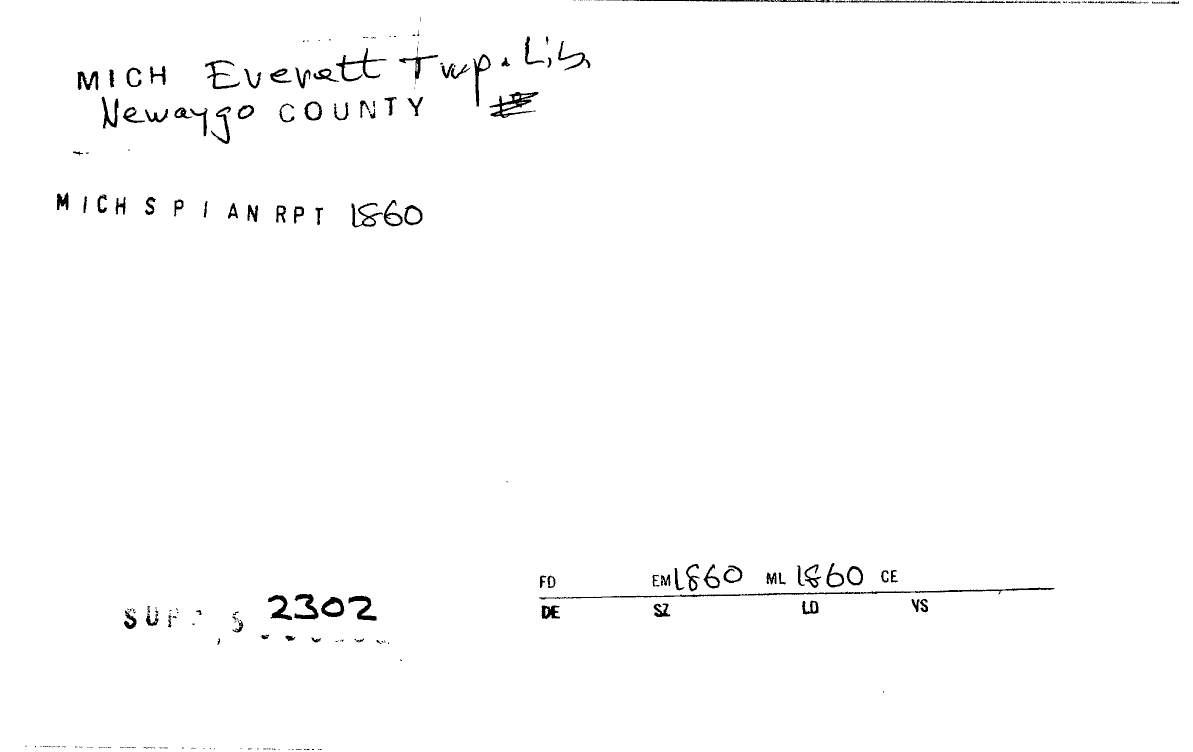 MICH Everett Twp. Lib.
Newaygo COUNTY
MICH S P I AN RPT 1860
FD EM 1860 ML 1860 CE
DE SZ LO VS
2302